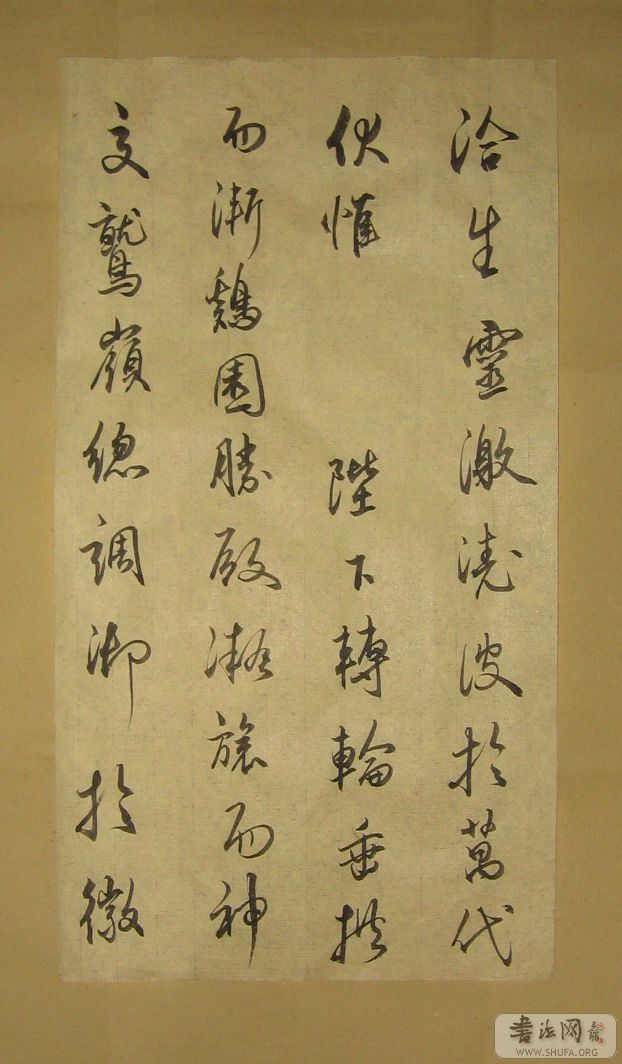 洽生靈激澆波於萬代
伏惟 陛下轉輪垂拱
而漸鷄園勝殿凝旒而神
交鷲嶺總調御於徽
書法网
WWW.SHUFA.ORG